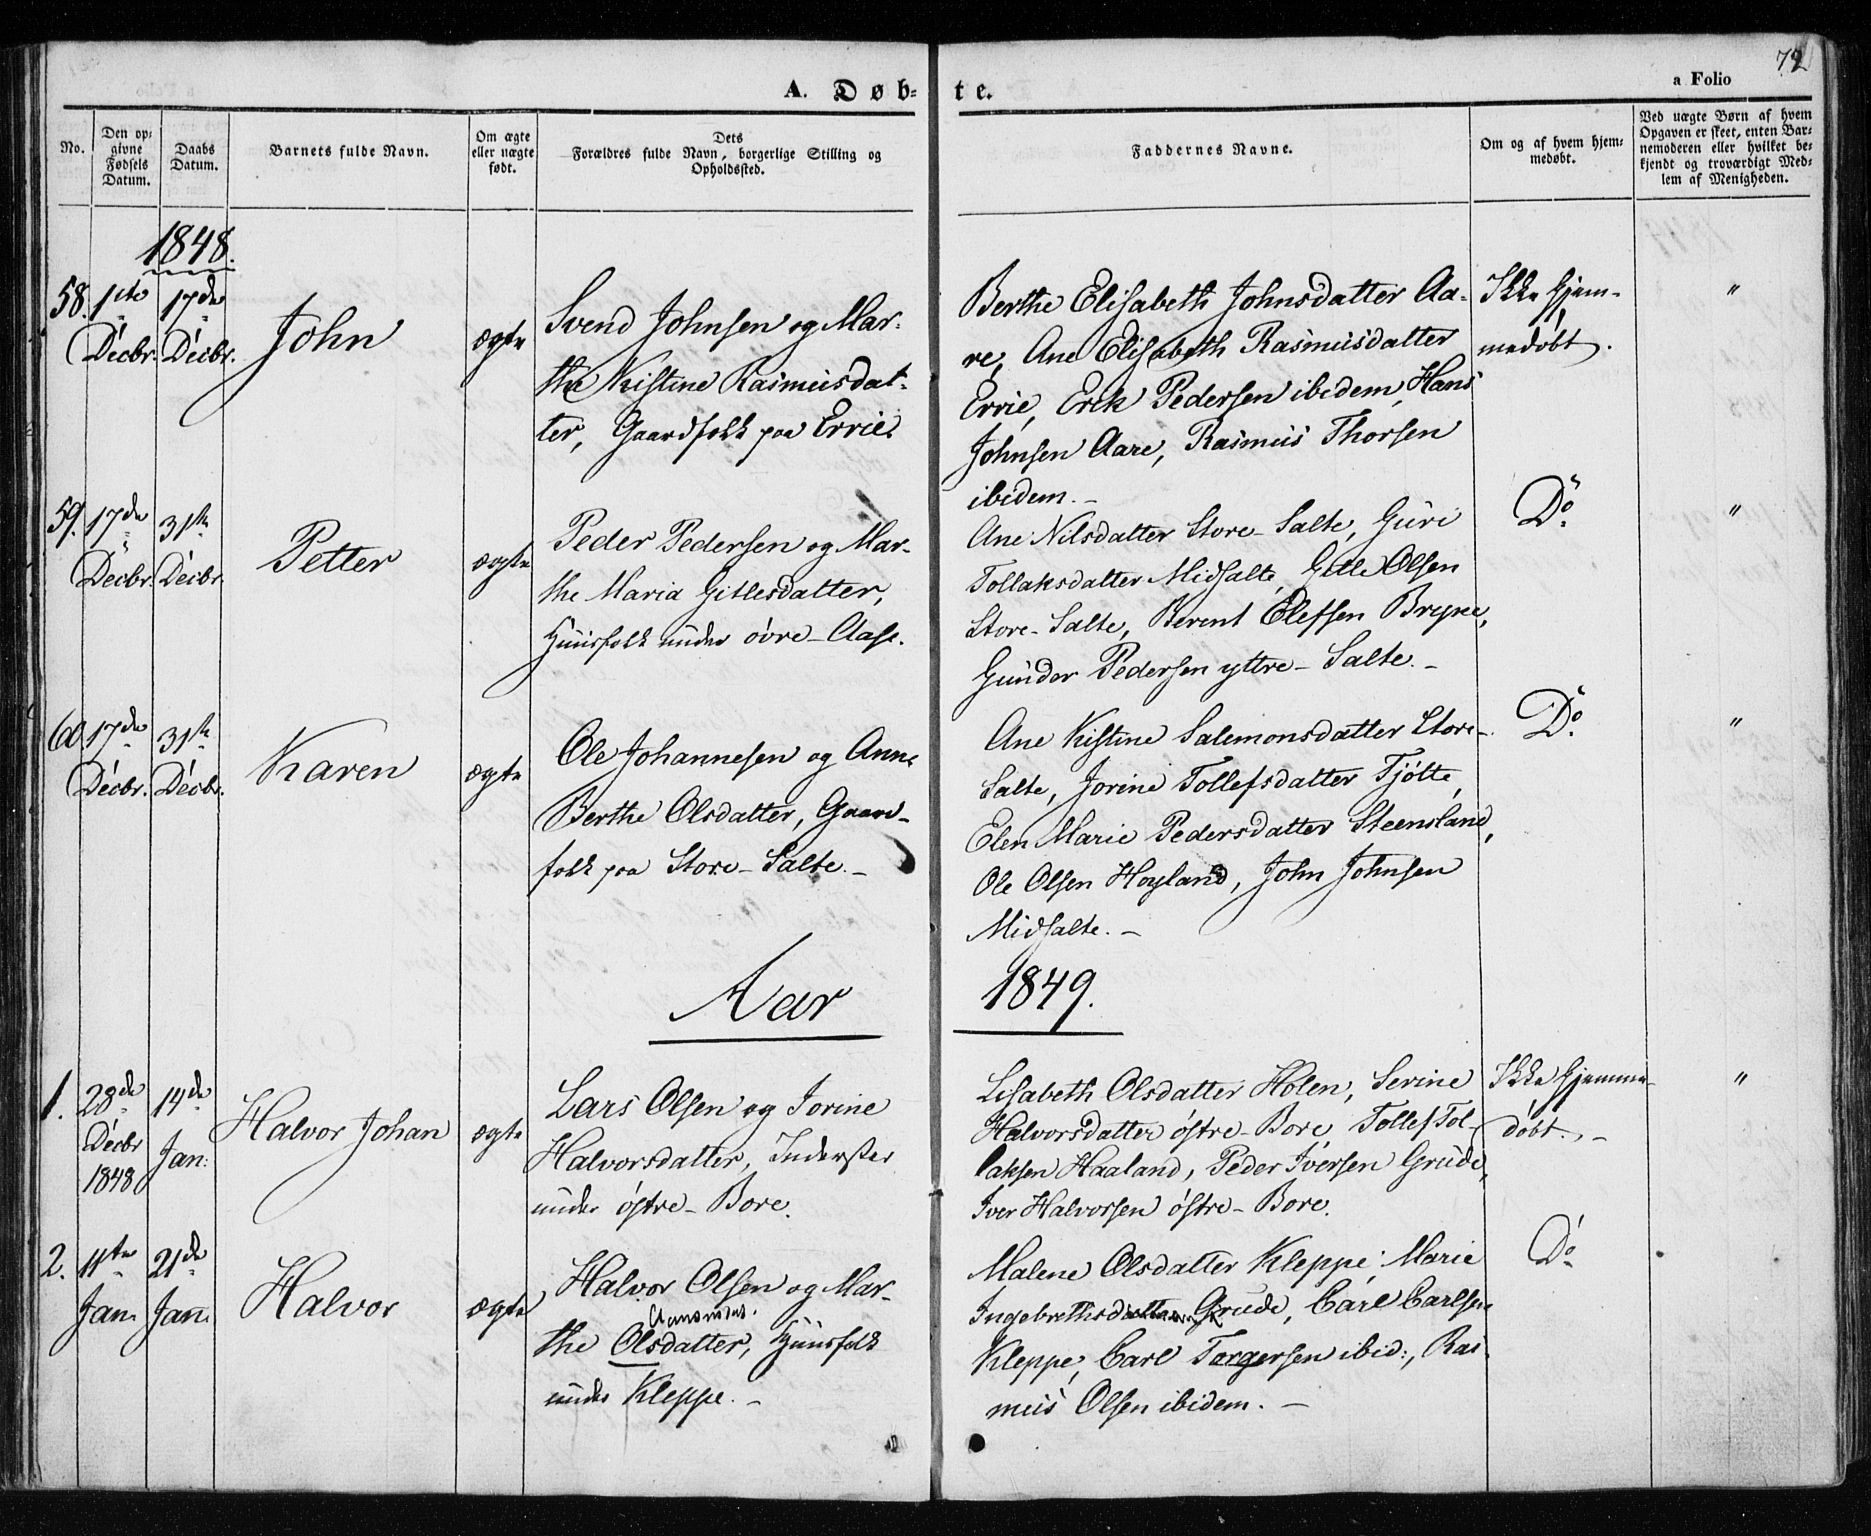 72
A. Døb=te.
a Folio
No.
Den op=
givne
Fødsels
Datum.
Daabs
Datum.
Barnets fulde Navn.
Om ægte
eller uægte
født.
Dets
Forældres fulde Navn, borgerlige Stilling og
Opholdssted.
Faddernes Navne.
Om og af hvem hjem=
medøbt.
Ved uægte Børn af hvem
Opgaven er skeet, enten Bar=
nemoderen eller hvilket be=
kjendt og troværdigt Med=
lem af Menigheden.
1848.
58.
1ste
Decbr.
17de
Decbr.
John
ægte
Svend Johnsen og Mar-
the Kistine Rasmusdat-
ter, Gaardfolk paa Errie.
Berthe Elisabeth Johnsdatter Aa-
re, Ane Elisabeth Rasmusdatter
Errie, Erik Pedersen ibidem, Hans
Johnsen Aare, Rasmus Thorsen
ibidem. -
Ikke Hjem-
medøbt.
"
59.
17de
Decbr.
31te
Decbr.
Petter
ægte
Peder Pedersen og Mar-
the Maria Gitlesdatter,
Huusfolk under øvre-Aase.
Ane Nilsdatter Store-Salte, Guri
Tollaksdatter Midsalte, Gitle Olsen
Store-Salte, Berent Elefsen Bryne,
Gunder Pedersen yttre-Salte. -
Do
"
60
17de
Decbr.
31te
Decbr.
Karen
ægte
Ole Johannesen og Anne
Berthe Olsdatter, Gaard-
folk paa Store-Salte. -
Ane Kistine Salemonsdatter Store-
Salte, Jorine Tollefsdatter Tjøtte,
Elen Marie Pedersdatter Steensland,
Ole Olsen Høyland, John Johnsen
Midsalte. -
Do
"
Aar 1849.
1.
28de
Decbr
1848
14de
Jan:
Halvor Johan
ægte
Lars Olsen og Jorine
Halvorsdatter, Inderster
under østre-Bore.
Lisabeth Olsdatter Holen, Serine
Halvorsdatter østre-Bore, Tollef Tol-
laksen Haaland, Peder Iversen Grude,
Iver Halvorsen østre-Bore.
Ikke Hjemme-
døbt. -
"
2.
11te
Jan.
21de
Jan.
Halvor
ægte
Halvor Olsen og Mar-
the Olsdatter, Huusfolk
under Kleppe. -
Malene Olsdatter Kleppe, Marie
Ingebrethsdatter Grude, Carl Carlsen
Kleppe, Carl Torgersen ibid:, Ras-
mus Olsen ibidem. -
Do